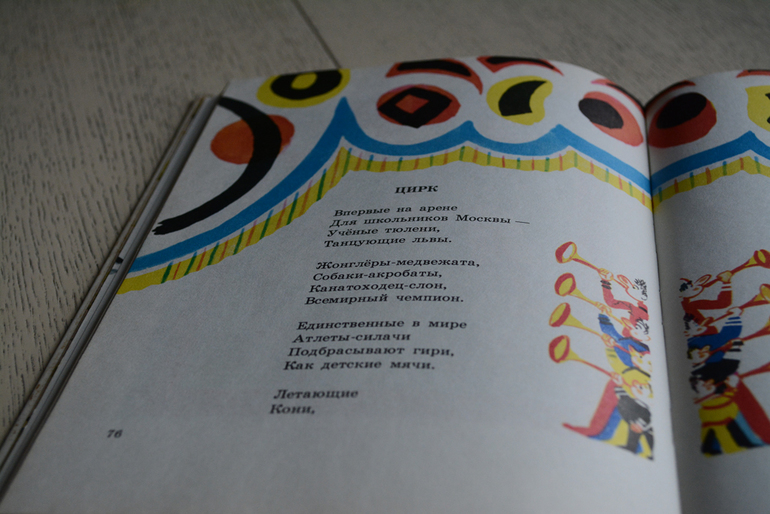 ЦИРК
Впервые на арене
Для школьников Москвы —
Учёные тюлени,
Танцующие львы.
Жонглёры-медвежата,
Собаки-акробаты,
Канатоходец-слон,
Всемирный чемпион.
Единственные в мире
Атлеты-силачи
Подбрасывают гири,
Как детские мячи.
Летающие
Кони,
76